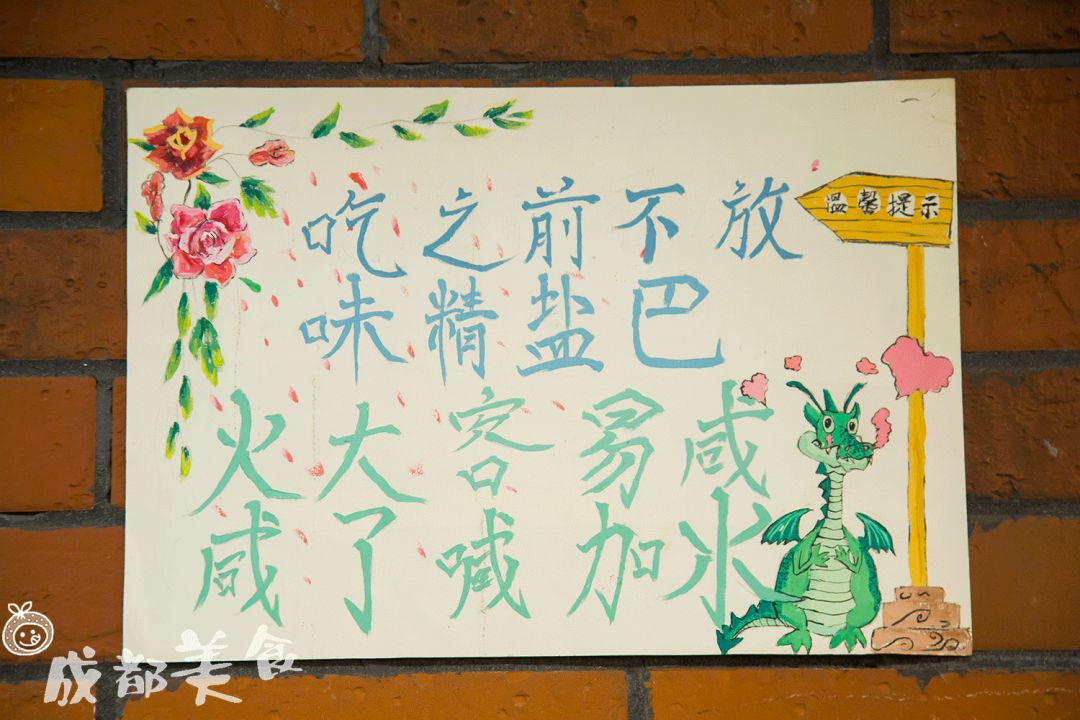 温馨提示
吃之前不放
味精盐巴
火大容易咸
咸了喊加水
成都美食